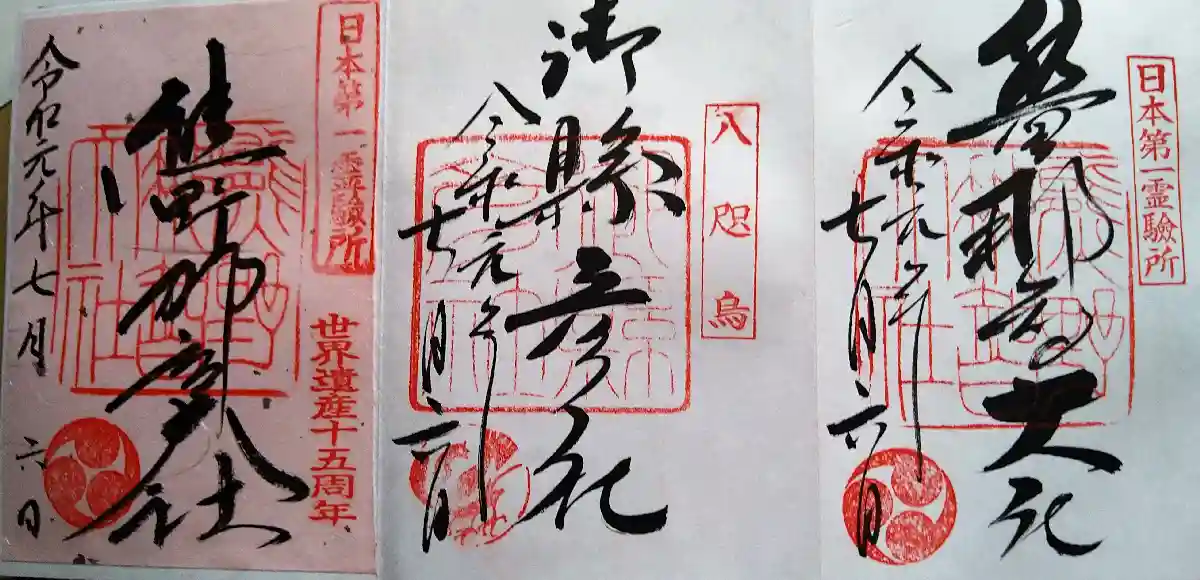 日本第一霊驗所
熊野那智大社
令和元年
七月六日
八咫烏
御縣彦社
令和元年
七月六日
日本第一霊驗所
世界遺産十五周年
熊野那智大社
令和元年七月六日